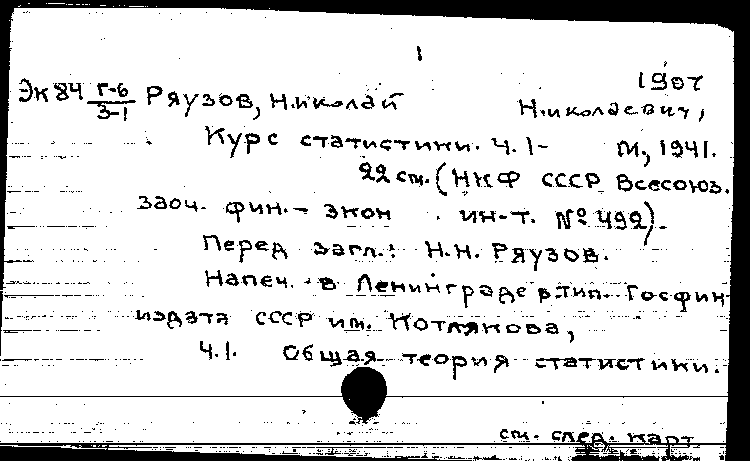 1
1907
Эк84 Г-6/3-1 Ряузов, Николай Николаевич,
Курс статистики. Ч. 1- М., 1941.
22 см. (НКФ СССР Всесоюз.
заоч. фин.-экон. ин-т. № 492).
Перед загл.: Н.Н. Ряузов.
Напеч. в Ленинграде в тип. Госфин-
издата СССР им. Котлякова,
Ч.1. Общая теория статистики.
см. след. карт.